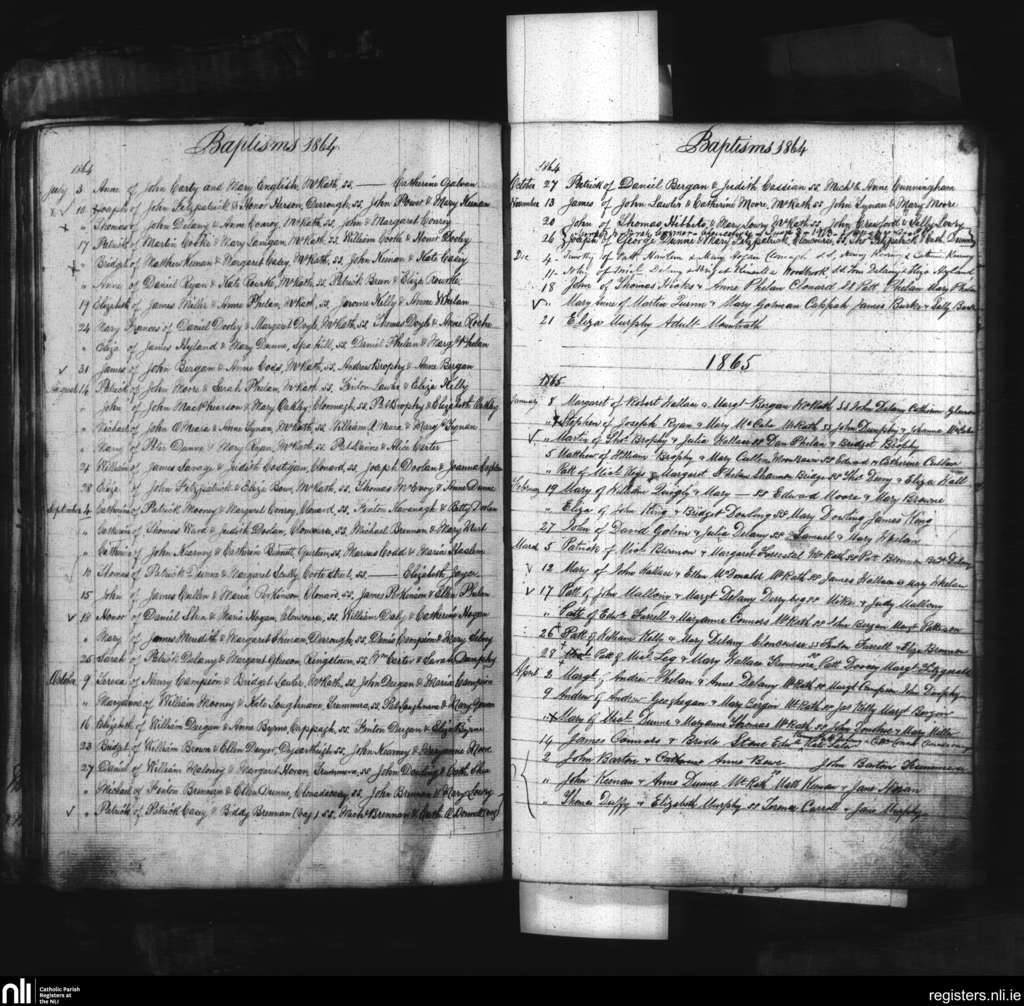 Baptisms 1864
1864
July 3 Anne of John Carty and Mary English, McRath, ss. —— Catherine Galvan
" 10 Joseph of John Fitzpatrick & Honor Herson, Derrough, ss. John Power & Mary Keenan
" Thomas of John Delany & Anne Conroy, McRath, ss. John & Margaret Conroy
17 Patrick of Martin Cooke & Mary Lanigan, McRath, ss. William Cooke & Honor Dooly
" Bridget of Matthew Keenan & Margaret Casey, McRath, ss. John Keenan & Kate Casey
" Anne of Daniel Ryan & Kate Rourke, McRath, ss. Patrick Bren & Eliza Rourke
19 Elizabeth of James Miller & Anne Phelan, McRath, ss. Jerome Kelly & Anne Whelan
24 Mary Frances of Daniel Dooley & Margaret Doyle, McRath, ss. Thomas Doyle & Anne Roche
" Eliza of James Hyland & Mary Dunne, Spa Hill, ss. Daniel Phelan & Margt Phelan
31 James of John Bergan & Anne Codd, McRath, ss. Andrew Brophy & Anne Bergan
August 14 Patrick of John Moore & Sarah Phelan, McRath, ss. Fenton Lawler & Eliza Kelly
" John of John MacPhearson & Mary Oakley, Clonmagh, ss. Pat Brophy & Elizabeth Oakley
" Michael of John O'Meara & Anne Tynan, McRath, ss. William O'Meara & Mary Tynan
" Mary of Peter Dunne & Mary Ryan, McRath, ss. Pat & Alice Carter
21 William of James Savage & Judith Costigan, Clonard, ss. Joseph Doolan & Joanna
28 Eliza of John Fitzpatrick & Eliza Bowe, McRath, ss. Thomas McEvoy & Anne Dunne
September 4 Catherine of Patrick Moony & Margaret Conroy, Clonard, ss. Fenton Kavanagh & Betty Dolan
" Catherine of Thomas Ward & Judith Dolan, Clonousra, ss. Michael Brennan & Mary Hurt
" Catherine of John Kearney & Catherine Bennett, ss. Marcus Codd & Maria
10 Thomas of Patrick Dunne & Margaret Scully, Coote Street, ss. —— Elizabeth Joyce
15 John of James Cullen & Maria Parkinson, Clonard, ss. James Parkinson & Ellen Phelan
18 Honor of Daniel Shea & Maria Hogan, Clonousra, ss. William Daly & Catherine Hogan
" Mary of James Meredith & Margaret Keenan, Derrough, ss. Denis Campion & Mary Delany
25 Sarah of Patrick Delany & Margaret Gleeson, Kingstown, ss. Wm Carter & Sarah Dunphy
October 9 Teresa of Henry Campion & Bridget Lawler, McRath, ss. John Deegan & Maria Campion
" Maryanne of William Mooney & Kate Loughnane, Trummera, ss. Pat Loughnane & Mary
16 Elizabeth of William Deegan & Anne Byrne, Cappagh, ss. Fenton Deegan & Eliza Byrne
23 Bridget of William Brown & Ellen Dwyer, ss. John Kearney & Maryanne Moore
27 Daniel of William Maloney & Margaret Horan, Trummera, ss. John Dowling & Cath. Shea
" Michael of Fenton Brennan & Ellen Dunne, Clonadacasey, ss. John Brennan & Mary Lowry
" Patrick of Patrick Casey & Biddy Brennan (bog) ss. Mich. Brennan & Cath. O'Donnell (bog)
Baptisms 1864
1864
October 27 Patrick of Daniel Bergan & Judith Cassian ss. Michl & Anne Cunningham
November 13 James of John Lawler & Catherine Moore, McRath, ss. John Tynan & Mary Moore
20 John of Thomas Hibbits & Mary Lowry McRath, ss. John Crawford & Sally Lowry
26 Joseph of George Dunne & Mary Fitzpatrick, Clonousra, ss. Thos Fitzpatrick & Mary Dunne
Dec 4 Timothy of Patt Howlen & Mary Hogan Clonagh ss. Henry & Catherine
11 John of Mick Delany & Woodbrook ss Tom Delany & Eliza Hyland
18 John of Thomas Hicks & Anne Phelan Clonard ss Patt Phelan Mary Phelan
" Mary Anne of Martin Quinn & Mary Gorman Cappah James Burke & Sally Burke
21 Eliza Murphy Adult Mountrath
1865
1865
January 8 Margaret of Robert Wallace & Margt Bergan McRath ss John Delany Catherine Gleeson
" Stephen of Joseph Ryan & Mary McCabe McRath ss John Dunphy & Johanna McCabe
" Martin of Thos Brophy & Julia Wallace ss Dan Phelan & Bridget Brophy
5 Matthew of William Brophy & Mary Cullen ss Edward & Catherine Cullen
" Patt of Mick & Margaret Phelan Shannon Bridge ss Thos & Eliza Wall
February 19 Mary of William Quigly & Mary — ss Edward Moore & Mary Browne
" Eliza of John King & Bridget Dowling ss Mary Dowling James King
27 John of David Galvin & Julia Delany ss Samuel & Mary Whelan
March 5 Patrick of Mick Brennan & Margaret Forrestal McRath ss Patt Brennan Delany
12 Mary of John Wallace & Ellen McDonald McRath ss James Wallace & Mary Whelan
17 Patt of John Mallony & Margt Delany Derry bog ss Mike & Judy Mallony
" Patt of Edwd Farrell & Maryanne Connors McRath ss John Bergan Margt Parkinson
26 Patt of William Kelly & Mary Delany Clonousra ss Fenton Farrell & Eliza Brennan
28 Patt of Mick Leg & Mary Wallace Trummera Patt Dorney Margt Fitzgerald
April 2 Margt of Andrew Phelan & Anne Delany McRath ss Margt Campion John Dunphy
9 Andrew of Andrew Geoghegan & Mary Bergin McRath ss Jas Kelly Margt Bergin
" Mary of Mick Dunne & Maryanne Thomas McRath ss John & Mary Miller
14 James Connors & Bride Stone Edwd
2 John Barton & Catherine Anne Bowe John Barton Trummera
" John Keenan & Anne Dunne McRath Matt Keenan & Jane Horan
" Duffy & Elizabeth Murphy ss Carroll & Jane Murphy
nli
Catholic Parish
Registers at
the NLI
registers.nli.ie